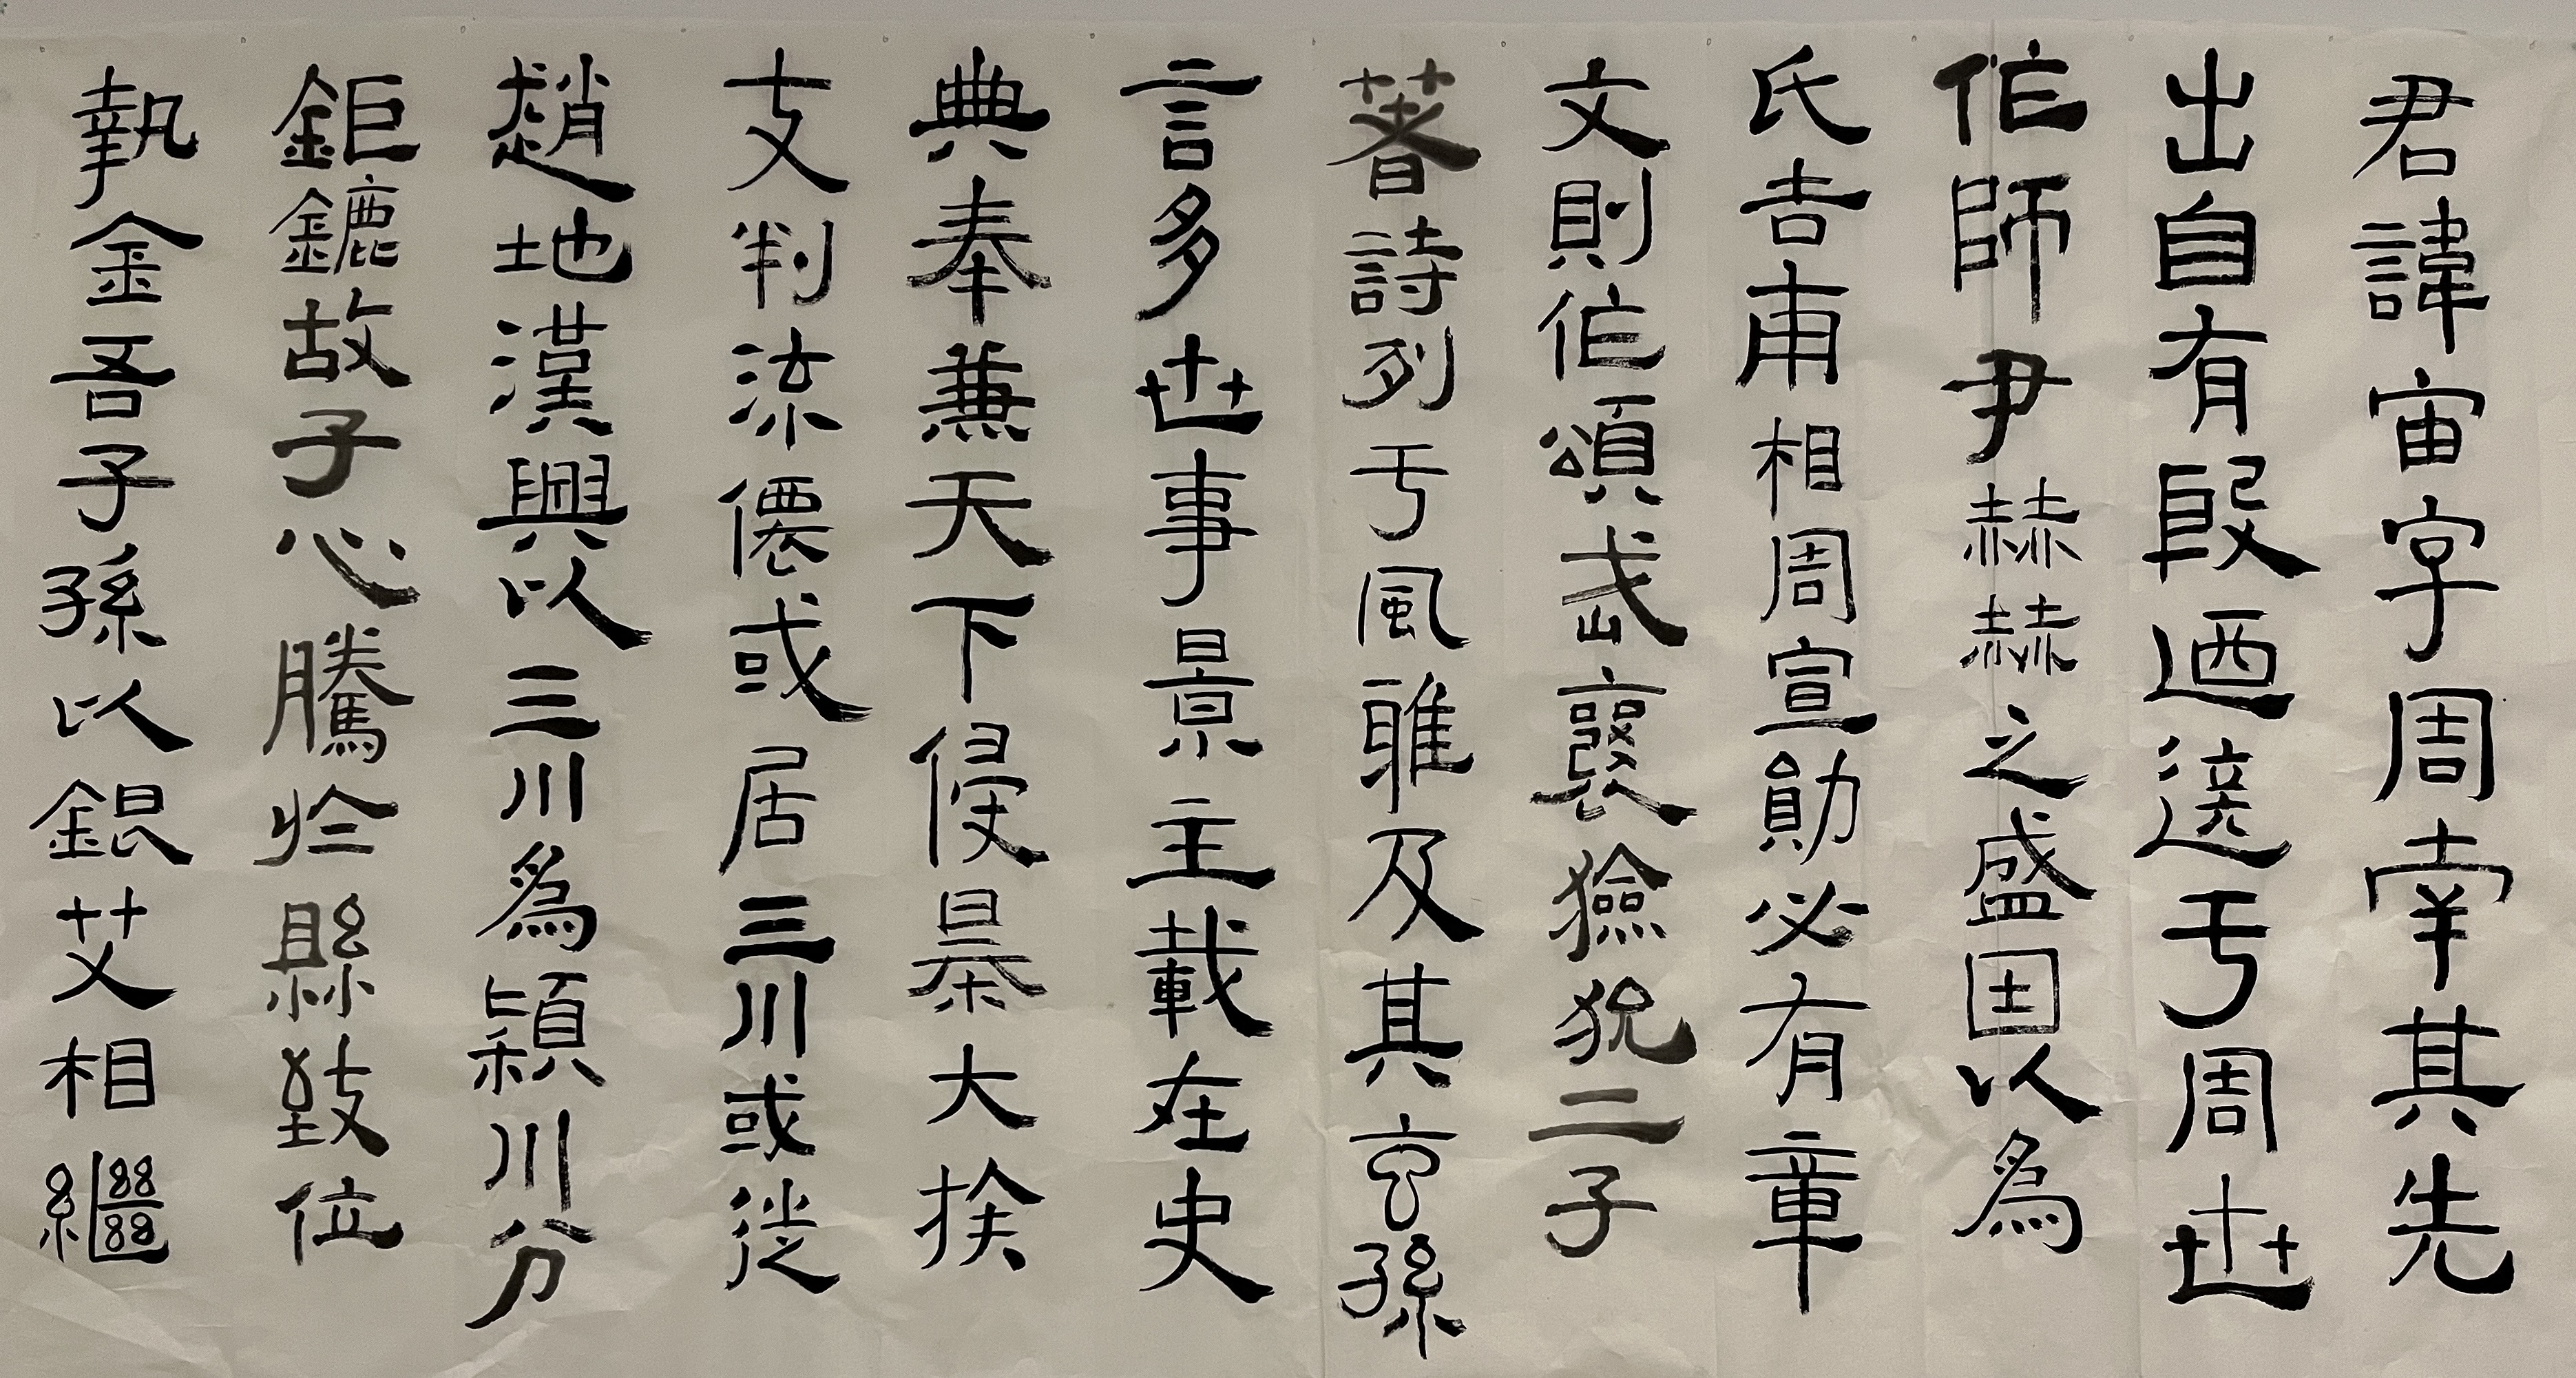 君諱宙字周南其先
出自有殷迺迻于周世
作師尹赫赫之盛因以為
氏吉甫相周宣勛必有章
文則作頌武襄獫狁二子
著詩列于風雅及其玄孫
言多世事景主載在史
典奉兼天下侵暴大族
支判流僊或居三川或徙
趙地漢興以三川為潁川分
鉅鏕故子心騰於縣致位
執金吾子孫以銀艾相繼